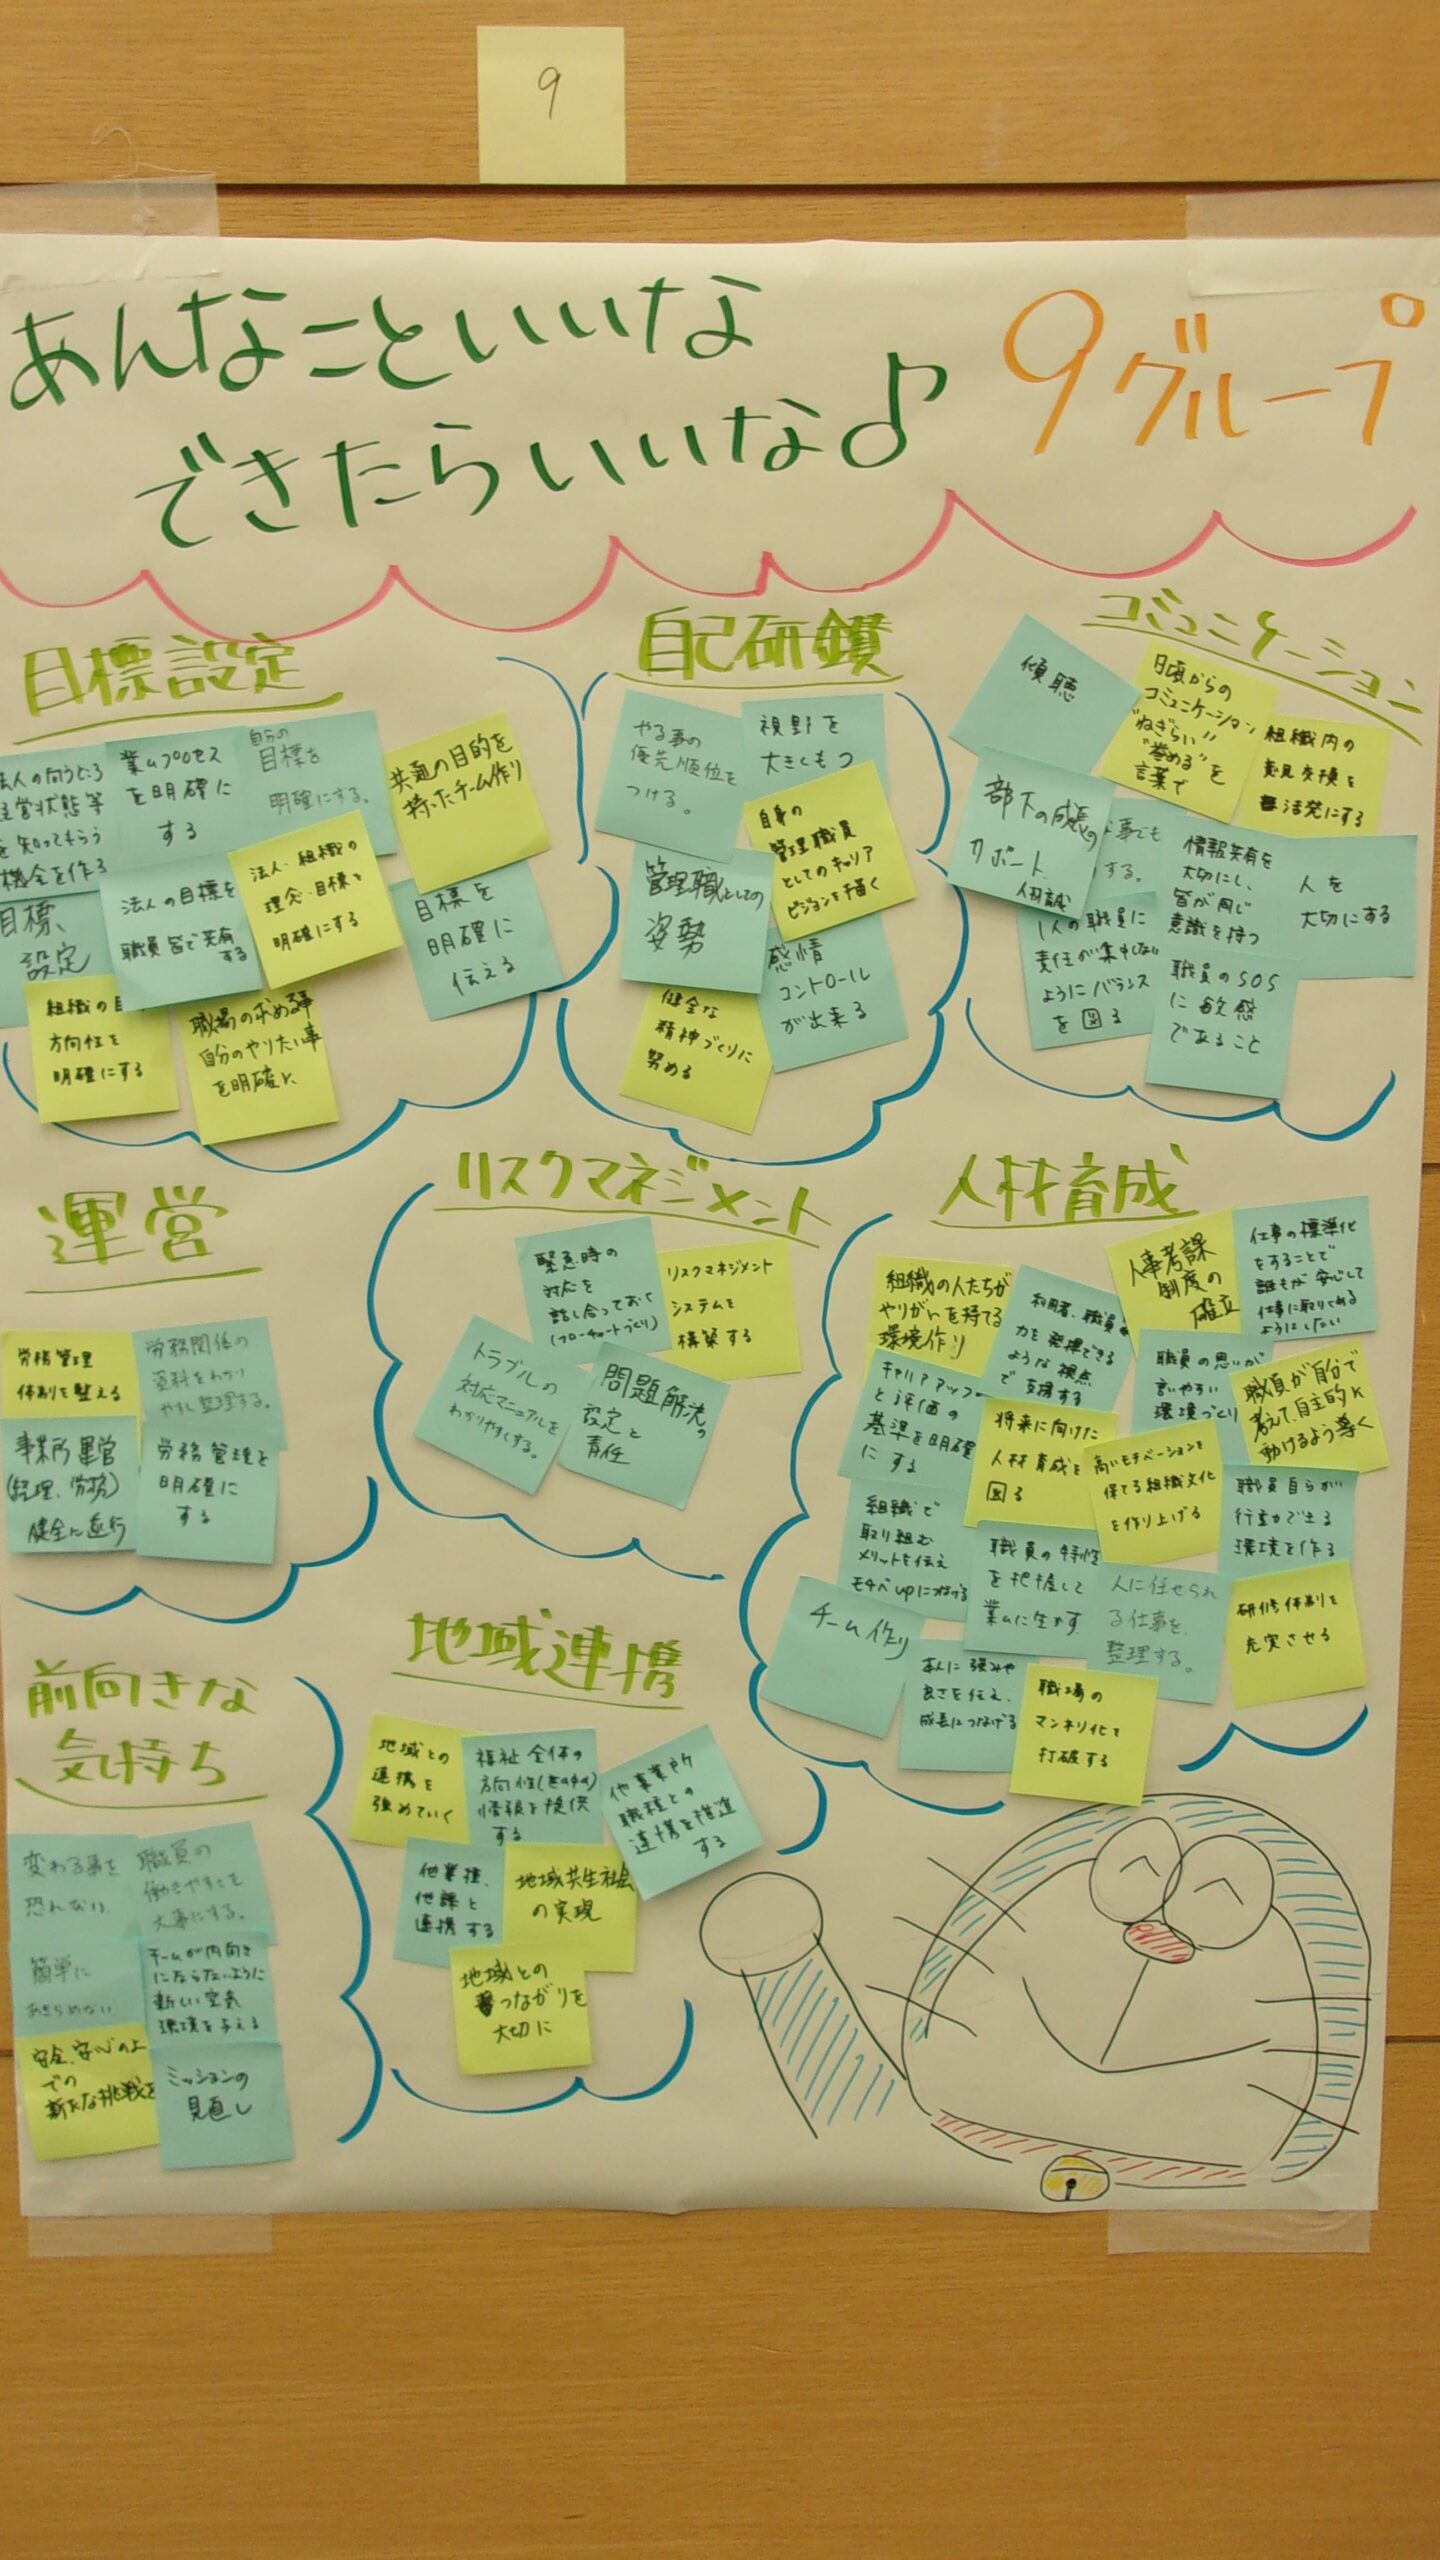 9
あんなこといいな
できたらいいな♪
9グループ
目標設定
法人の向うところ
経営状態等
を知ってもらう
機会を作る
業ムプロセス
を明確に
する
自分の
目標を
明確にする。
共通の目的を
持ったチーム作り
目標、
設定
法人の目標を
職員皆で共有
する
法人・組織の
理念・目標を
明確にする
目標を
明確に
伝える
組織の目
方向性を
明確にする
職場の求める事
自分のやりたい事
を明確に
自己研鑽
やる事の
優先順位を
つける。
視野を
大きくもつ
自身の
管理職員
としてのキャリア
ビジョンを描く
管理職としての
姿勢
感情
コントロール
が出来る
健全な
精神づくりに
努める
コミュニケーション
傾聴
日頃からの
コミュニケーション
"ねぎらい"
"誉める"を
言葉で
組織内の
意見交換を
活発にする
部下の成長の
サポート
人材育成
事でも
する。
情報共有を
大切にし、
皆が同じ
意識を持つ
人を
大切にする
1人の職員に
責任が集中しない
ようにバランス
を図る
職員のSOS
に敏感
であること
運営
労務管理
体制を整える
労務関係の
資料をわかり
やすく整理する。
事業所運営
(経理、労務)
健全に遂行
労務管理を
明確に
する
リスクマネジメント
緊急時の
対応を
話し合っておく
(フローチャートづくり)
リスクマネジメント
システムを
構築する
トラブルの
対応マニュアルを
わかりやすくする。
問題解決の
設定と
責任
人材育成
組織の人たちが
やりがいを持てる
環境作り
利用者、職員の
力を発揮できる
ような視点
で支援する
人事考課
制度の
確立
仕事の標準化
をすることで
誰もが安心して
仕事に取りくめる
ようにしたい
キャリアアップ
と評価の
基準を明確
にする
将来に向けた
人材育成を
図る
職員の思いが
言いやすい
環境づくり
職員が自分で
考えて、自主的に
動けるよう導く
高いモチベーションを
保てる組織文化
を作り上げる
職員自らが
行動できる
環境を作る
組織で
取り組む
メリットを伝え
モチベupにつなげる
職員の特性
を把握して
業ムに生かす
人に任せられ
る仕事を、
整理する。
研修体制を
充実させる
チーム作り
本人に強みや
良さを伝え、
成長につなげる
職場の
マンネリ化を
打破する
前向きな
気持ち
変わる事を
恐れない
職員の
働きやすさを
大事にする。
簡単に
あきらめない
チームが内向き
にならないように
新しい空気
環境を与える
安全、安心の上
での
新たな挑戦を
ミッションの
見直し
地域連携
地域との
連携を
強めていく
福祉全体の
方向性(世の中の)
情報を提供
する
他事業所
職種との
連携を推進
する
他業種、
他課と
連携する
地域共生社会
の実現
地域との
つながりを
大切に